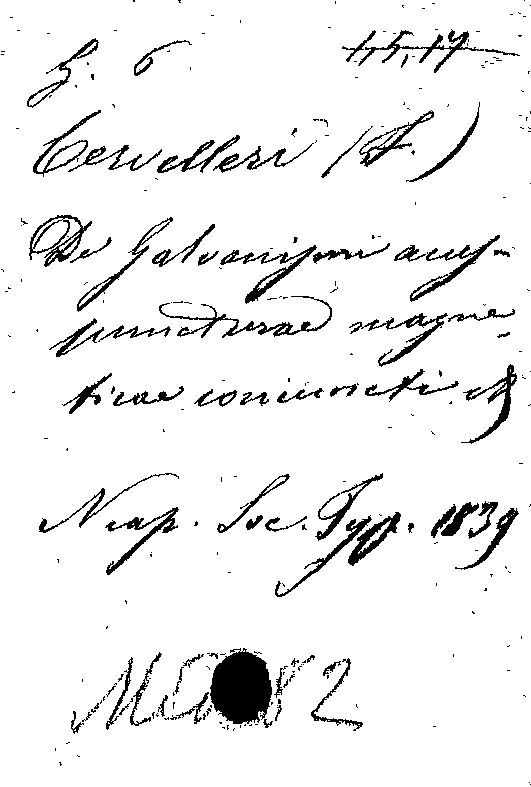 G. 6 1,5,17
Cervelleri (F.)
De Galvanismi acu-
puncturae magne-
ticae coniuncti et
Neap. Soc. Typ. 1839
82